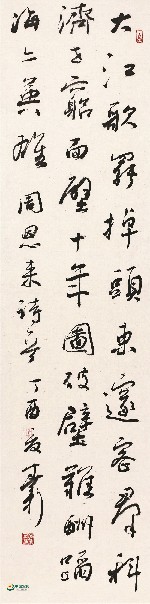 大江歌罷掉頭東邃密羣科
濟世窮面壁十年圖破壁難酬蹈
海亦英雄 周恩來詩 丁酉夏